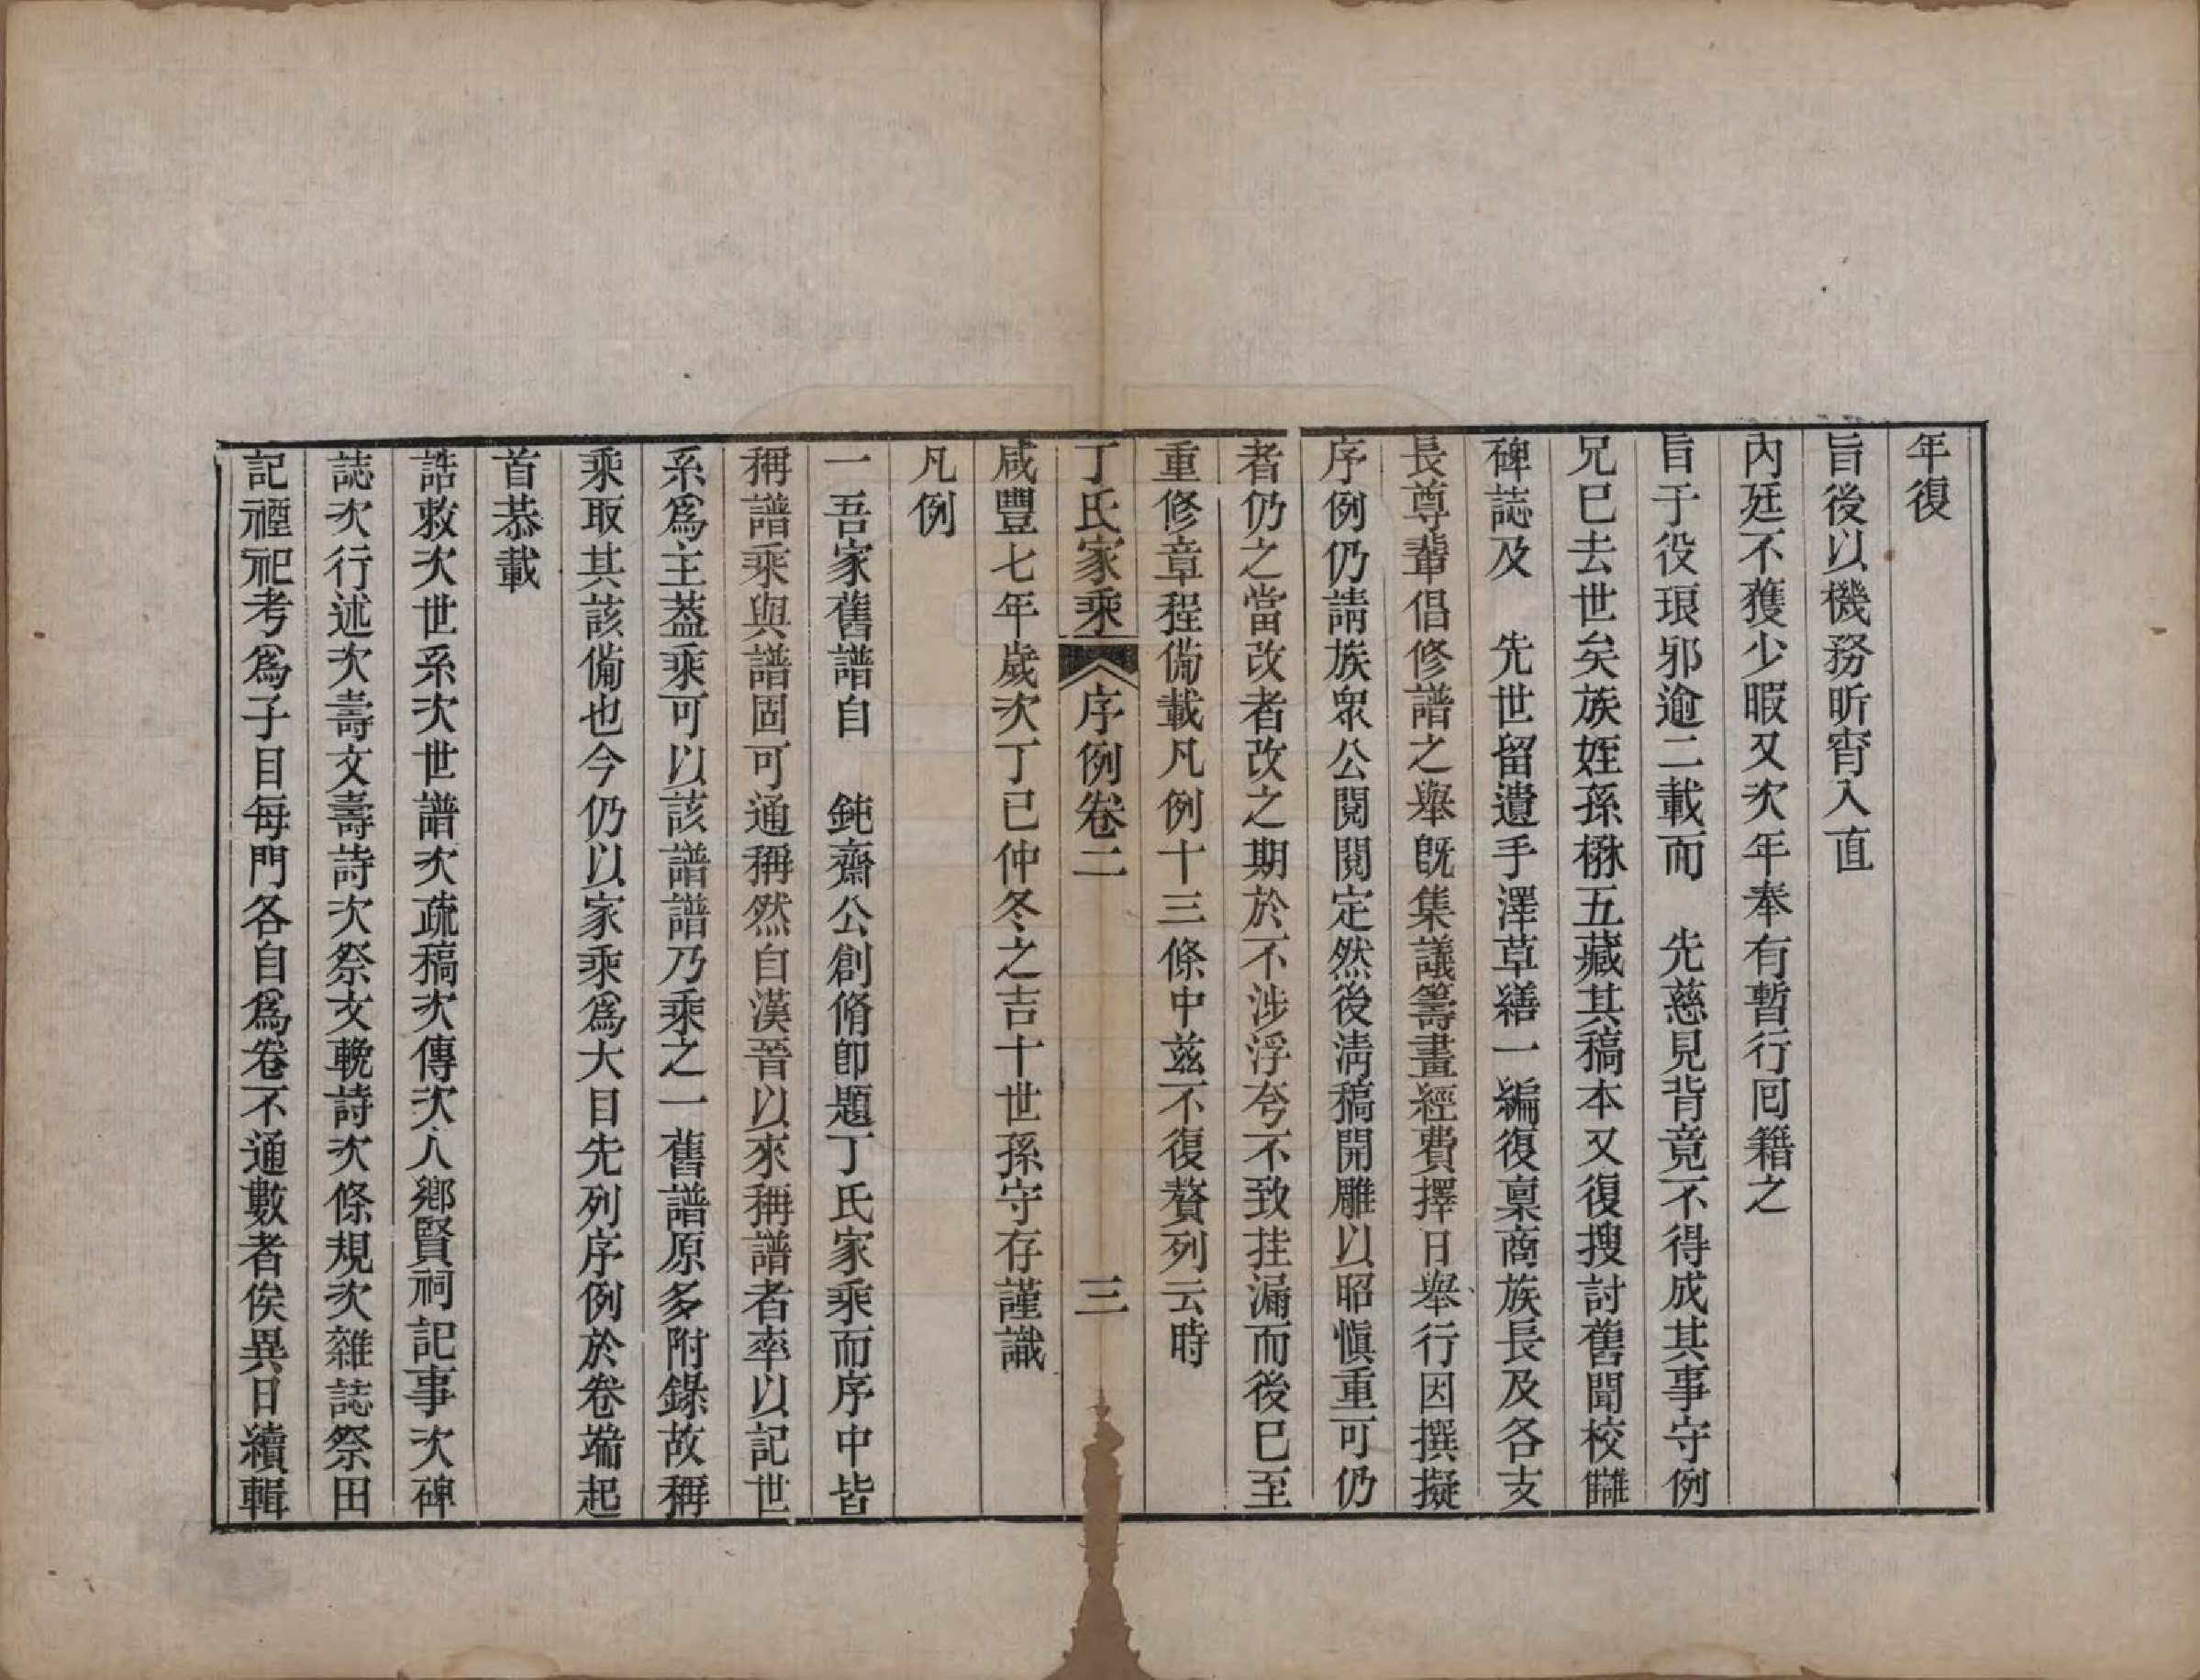 年復
旨後以機務昕宵入直
內廷不獲少暇又次年奉有暫行囘籍之
旨于役琅邪逾二載而　先慈見背竟不得成其事守例
兄巳去世矣族姪孫楙五藏其稿本又復搜討舊聞校讎
碑誌及　先世留遺手澤草繕一編復稟商族長及各支
長尊輩倡修譜之舉旣集議籌畫經費擇日舉行因撰擬
序例仍請族衆公閱閱定然後淸稿開雕以昭愼重可仍
者仍之當改者改之期於不涉浮夸不致挂漏而後巳至
重修章程備載凡例十三條中兹不復贅列云時
丁氏家乘　序例卷二　三
咸豐七年歲次丁巳仲冬之吉十世孫守存謹識
凡例
一　吾家舊譜自　鈍齋公創脩卽題丁氏家乘而序中皆
稱譜乘與譜固可通稱然自漢晉以來稱譜者率以記世
系爲主葢乘可以該譜譜乃乘之一舊譜原多附錄故稱
乘取其該備也今仍以家乘爲大目先列序例於卷端起
首恭載
誥敕次世系次世譜次疏稿次傳次入鄉賢祠記事次碑
誌次行述次壽文壽詩次祭文輓詩次條規次雜誌祭田
記禋祀考爲子目每門各自爲卷不通數者俟異日續輯